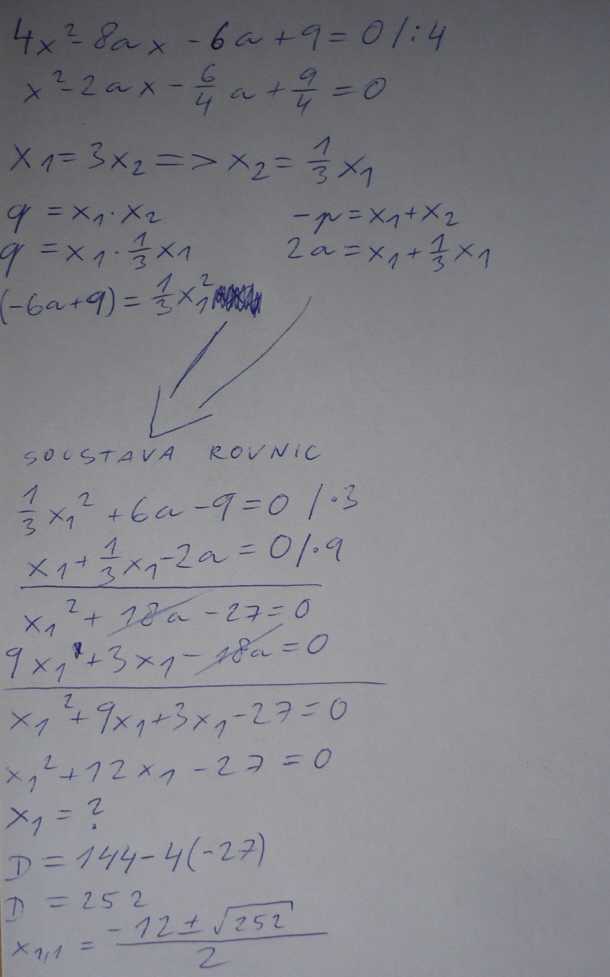 4x² - 8ax - 6a + 9 = 0 / : 4
x² - 2ax - 6/4 a + 9/4 = 0
x₁ = 3x₂ => x₂ = 1/3 x₁
q = x₁ · x₂ -p = x₁ + x₂
q = x₁ · 1/3 x₁ 2a = x₁ + 1/3 x₁
(-6a + 9) = 1/3 x₁²
SOUSTAVA ROVNIC
1/3 x₁² + 6a - 9 = 0 / · 3
x₁ + 1/3 x₁ - 2a = 0 / · 9
x₁² + 18a - 27 = 0
9x₁ + 3x₁ - 18a = 0
x₁² + 9x₁ + 3x₁ - 27 = 0
x₁² + 12x₁ - 27 = 0
x₁ = ?
D = 144 - 4(-27)
D = 252
x₁,₁ = (-12 ± √252)/2